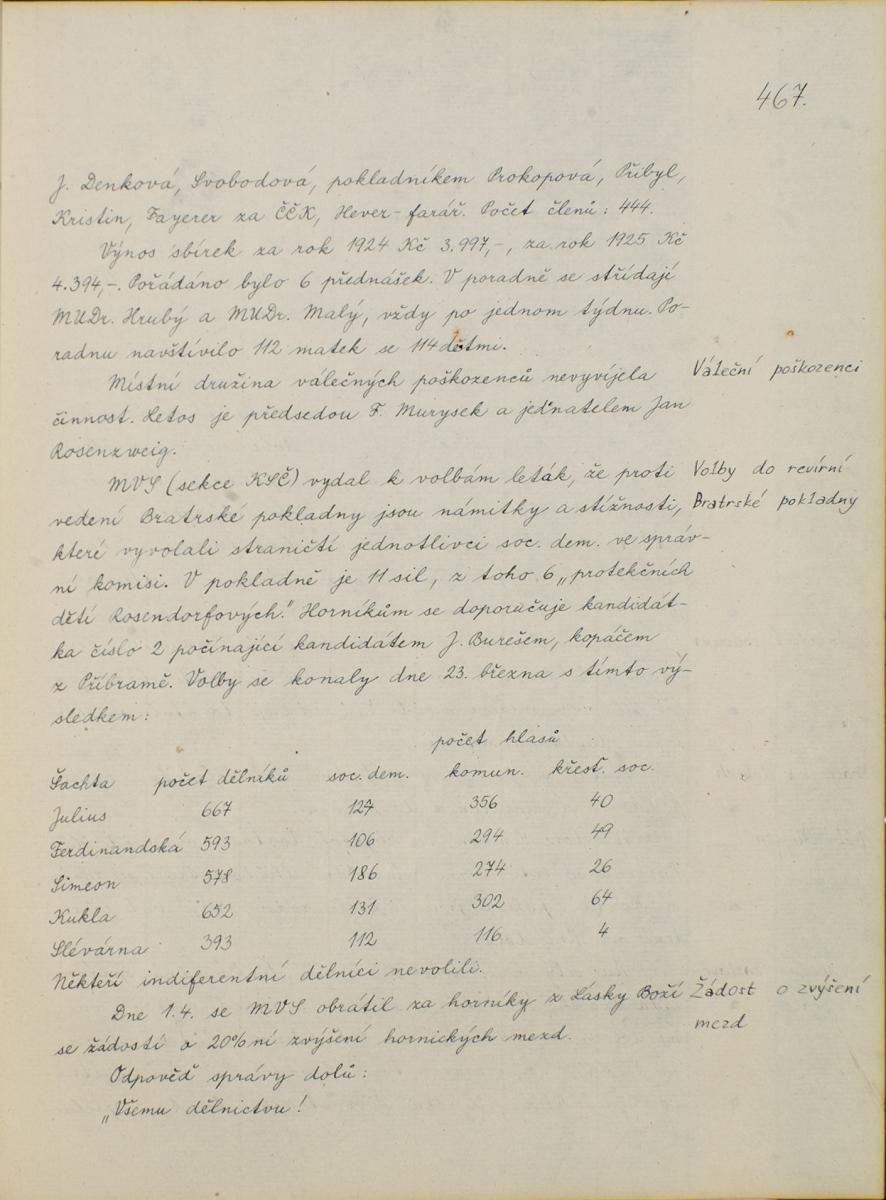 467.
J. Denková, Svobodová, pokladníkem Prokopová, Přibyl,
Kristin, Fayerer za ČČK, Hever-farář. Počet členů: 444.
Výnos sbírek za rok 1924 Kč 3.997,-, za rok 1925 Kč
4.394,-. Pořádáno bylo 6 přednášek. V poradně se střídají
MUDr. Hrubý a MUDr. Malý, vždy po jednom týdnu. Po-
radnu navštívilo 112 matek se 114 dětmi.
Místní družina válečných poškozenců nevyvíjela
Váleční poškozenci
činnost. Letos je předsedou F. Murysek a jednatelem Jan
Rosenzweig.
MVS (sekce KSČ) vydal k volbám leták, že proti
Volby do revírní
vedení Bratrské pokladny jsou námitky a stížnosti,
Bratrské pokladny
které vyvolali straničtí jednotlivci soc. dem. ve správ-
ní komisi. V pokladně je 11 sil, z toho 6 „protekčních
dětí Rosendorfových." Horníkům se doporučuje kandidát-
ka číslo 2 počínající kandidátem J. Burešem, kopáčem
z Příbramě. Volby se konaly dne 23. března s tímto vý-
sledkem:
počet hlasů
Šachta počet dělníků soc. dem. komun. křesť. soc.
Julius 667 127 356 40
Ferdinandská 593 106 294 49
Simeon 578 186 274 26
Kukla 652 131 302 64
Slévárna 393 112 116 4
Někteří indiferentní dělníci nevolili.
Dne 1.4. se MVS obrátil za horníky z Lásky Boží
Žádost o zvýšení
se žádostí o 20%ní zvýšení hornických mezd.
mezd
Odpověď správy dolů:
„Všemu dělnictvu!